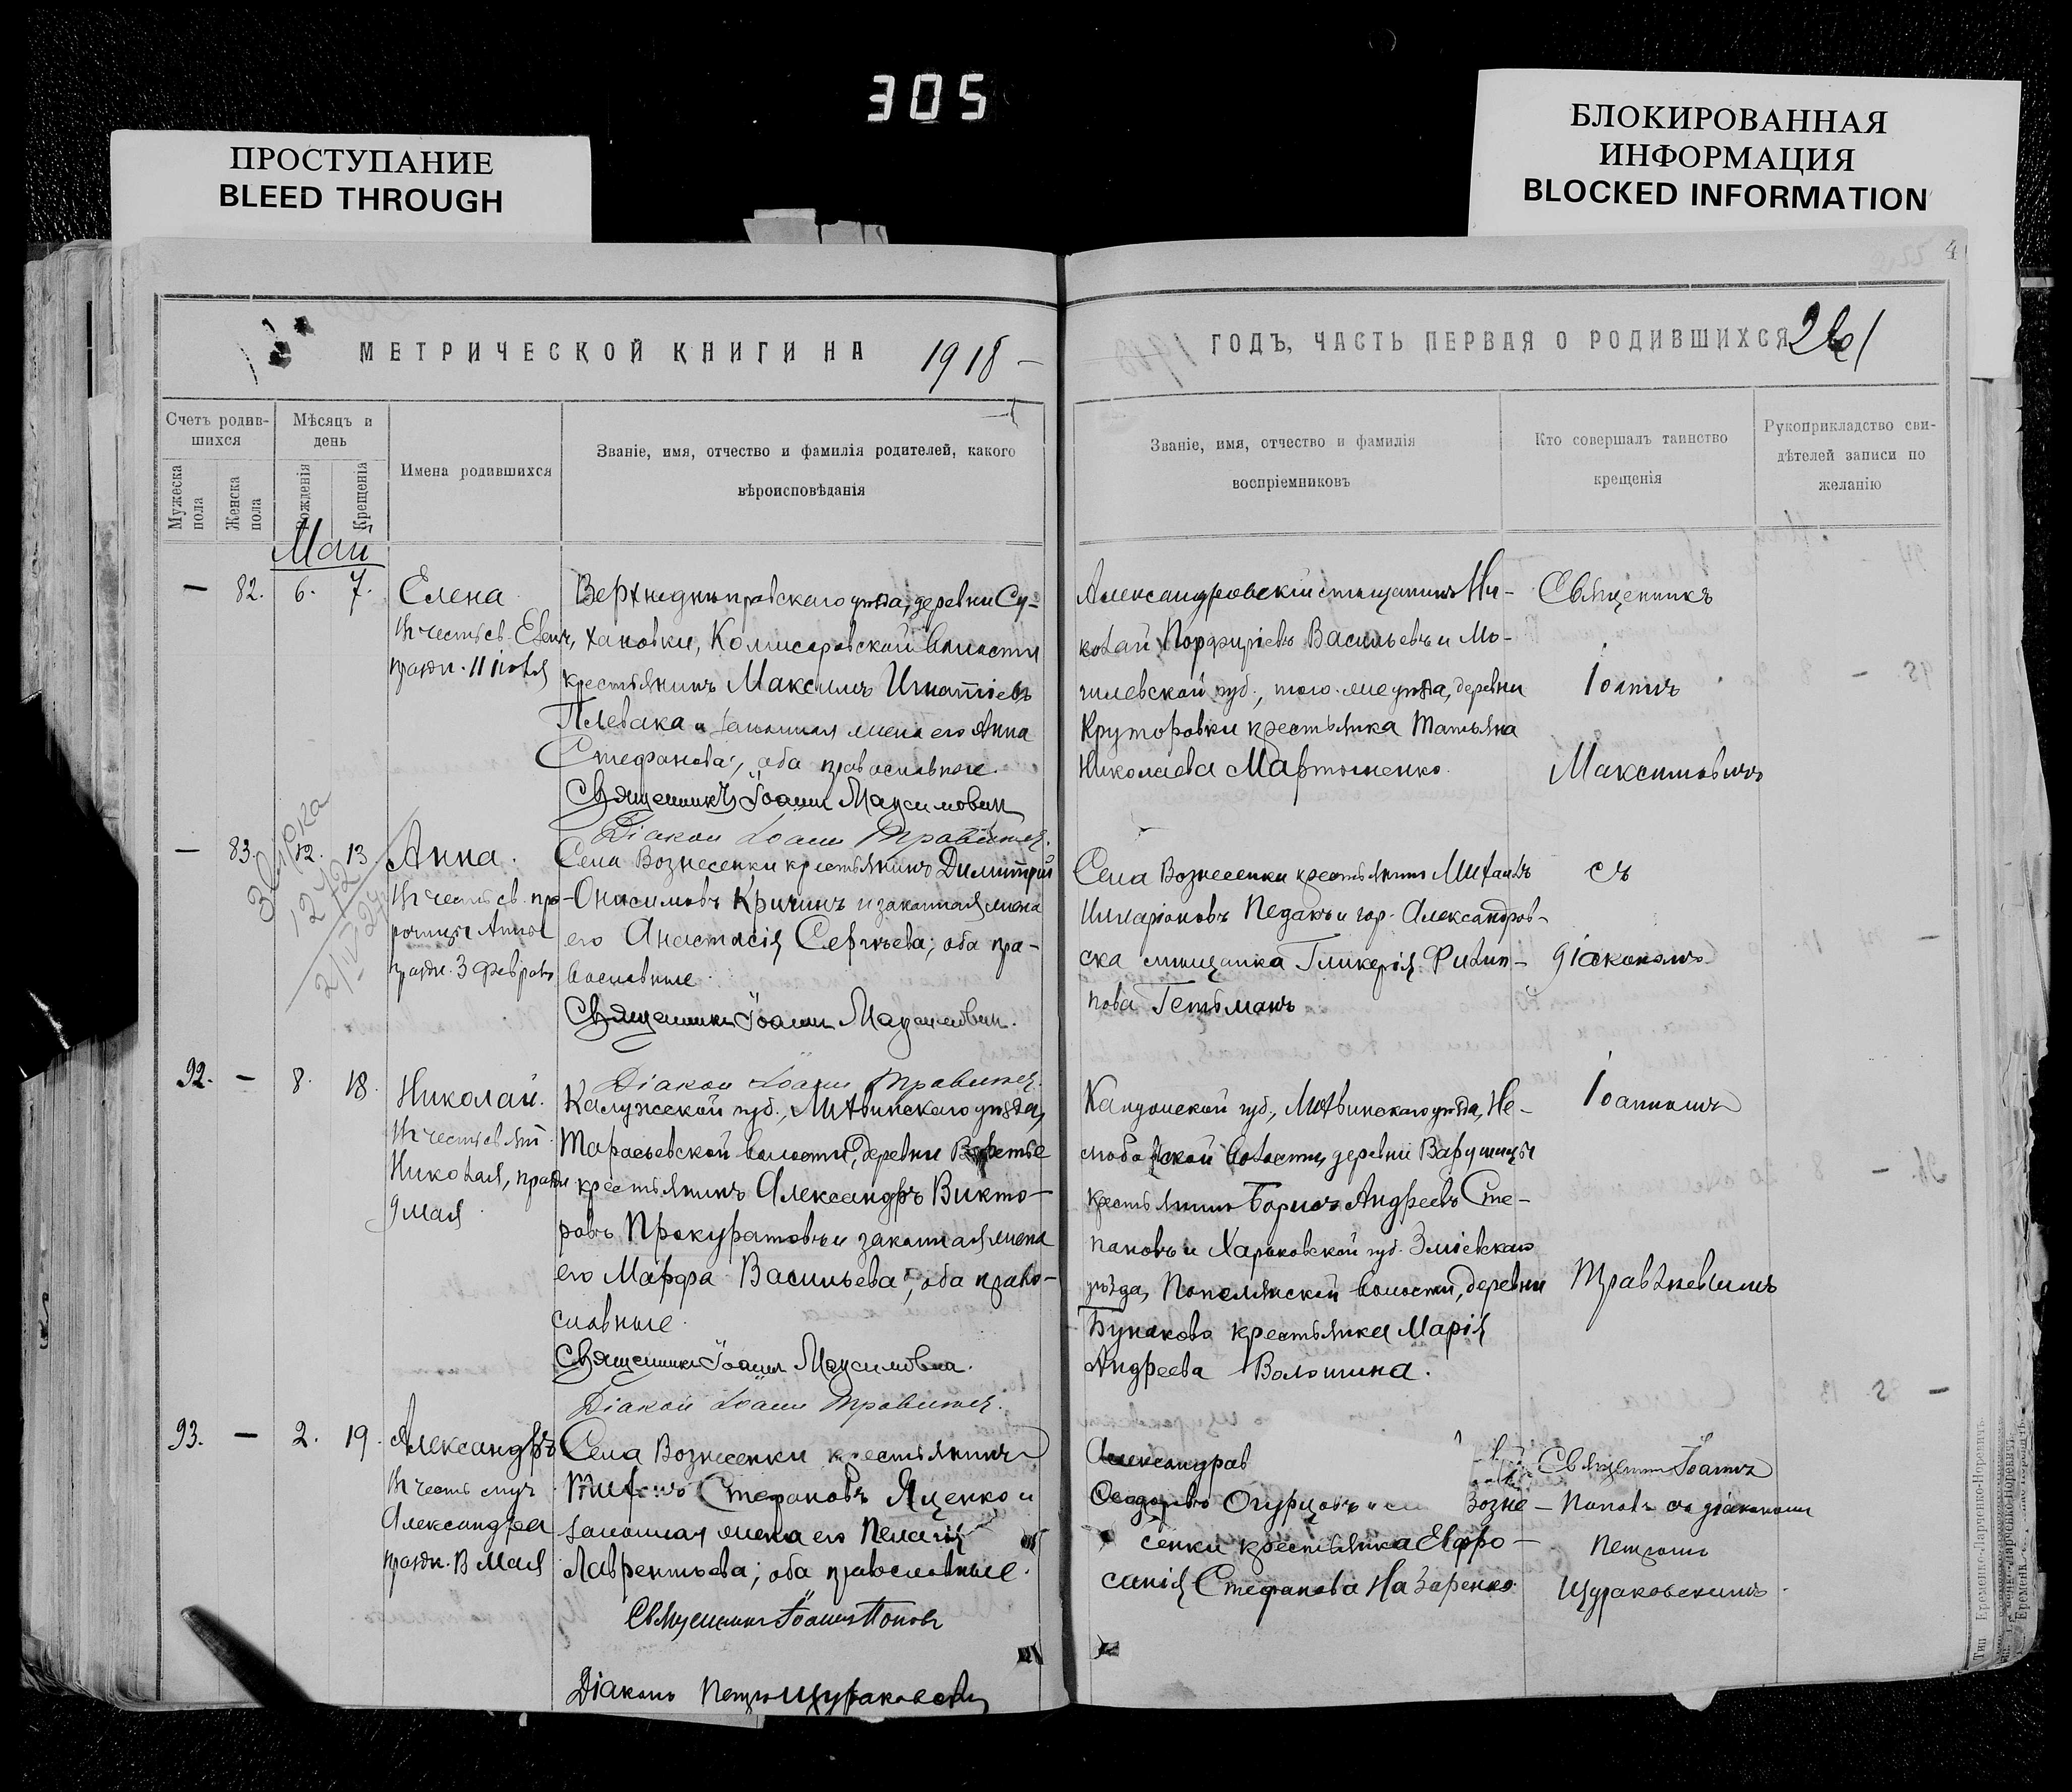 305
ПРОСТУПАНИЕ
BLEED THROUGH
БЛОКИРОВАННАЯ
ИНФОРМАЦИЯ
BLOCKED INFORMATION
4
МЕТРИЧЕСКОЙ КНИГИ НА 1918
ГОДЪ, ЧАСТЬ ПЕРВАЯ О РОДИВШИХСЯ 261
Счетъ родив-
шихся
Мужеска
пола
Женска
пола
Мѣсяцъ и
день
Рожденія
Крещенія
Имена родившихся
Званіе, имя, отчество и фамилія родителей, какого
вѣроисповѣданія
Званіе, имя, отчество и фамилія
воспріемниковъ
Кто совершалъ таинство
крещенія
Рукоприкладство сви-
дѣтелей записи по
желанію
Май
— 82. 6. 7.
Елена
въ честь св. Елены,
праздн. 11 іюля
Верхнеднѣпровскаго уѣзда, деревни Су-
хановки, Комисаровской волости
крестьянинъ Максимъ Игнатіевъ
Плевака и законная жена его Анна
Стефанова; оба православные.
Священникъ Іоаннъ Максимовичъ
Діаконъ Іоаннъ
Александровскій мѣщанинъ Ни-
колай Порфиріевъ Васильевъ и Мо-
гилевской губ., того-же уѣзда, деревни
Круторовки крестьянка Татьяна
Николаева Мартыненко.
Священникъ
Іоаннъ
Максимовичъ
— 83. 12. 13.
Анна.
въ честь св. про-
рочицы Анны
праздн. 3 февраля
Села Вознесенки крестьянинъ Димитрій
Онисимовъ Кричинъ и законная жена
его Анастасія Сергѣева; оба пра-
вославные.
Священникъ Іоаннъ Максимовичъ.
Діаконъ Іоаннъ
Села Вознесенки крестьянинъ Михаилъ
Иларіоновъ Педакъ и гор. Александров-
ска мѣщанка Гликерія Филип-
пова Гетьманъ
съ
діакономъ
Іоанномъ
92. — 8. 18.
Николай.
въ честь свят.
Николая, праздн.
9 мая
Калужской губ., Мещинскаго уѣзда,
волости, деревни
крестьянинъ Александръ Викто-
ровъ Прокуратовъ и законная жена
его Марфа Васильева; оба право-
славные.
Священникъ Іоаннъ Максимовичъ.
Діаконъ Іоаннъ
Калужской губ., уѣзда, Не-
волости, деревни
крестьянинъ Борисъ Андреевъ Сте-
пановъ и Харьковской губ. Зміевскаго
уѣзда, волости, деревни
Бунаково крестьянка Марія
Андреева Волошина.
93. — 2. 19.
Александръ
въ честь муч.
Александра
праздн. 13 мая
Села Вознесенки крестьянинъ
Стефановъ Яценко и
законная жена его Пелагія
Лаврентьева; оба православные.
Священникъ Іоаннъ Поповъ
Діаконъ Петръ Щураковскій
Александров
Огурцовъ и Возне-
сенки крестьянка Евфро-
синія Стефанова Назаренко.
Священникъ Іоаннъ
Поповъ съ діакономъ
Петромъ
Щураковскимъ.